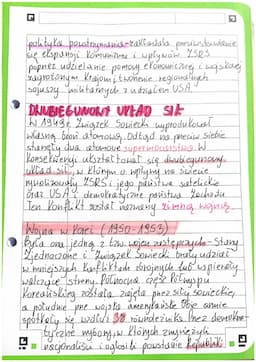 polityka powstrzymania - zakładała przeciwstawianie
się ekspansji komunizmu i wpływów ZSRS
poprzez udzielanie pomocy ekonomicznej i wojskowej
zagrożonym krajom i tworzenie regionalnych
sojuszy militarnych z udziałem USA.
DWUBIEGUNOWY UKŁAD SIŁ
W 1949 r. Związek Sowiecki wyprodukował
własną broń atomową. Odtąd na przeciw siebie
stanęły dwa atomowe supermocarstwa. W
konsekwencji ukształtował się dwubiegunowy
układ sił, w którym o wpływy na świecie
rywalizowały ZSRS i jego państwa satelickie
oraz USA i demokratyczne państwa Zachodu
Ten konflikt został nazwany zimną wojną.
Wojna w Korei (1950-1953)
Była ona jedną z tzw. wojen zastępczych - Stany
Zjednoczone i Związek Sowiecki brały udział
w mniejszych konfliktach zbrojnych lub wspierały
walczące strony. Północna część Półwyspu
Koreańskiego została zajęta przez siły sowieckie,
a południe przez wojska amerykańskie. Obie armie
spotkały się wzdłuż 38 równoleżnika. Przez demokra-
tyczne wybory, w których zwyciężyli
nacjonaliści i ogłosili powstanie Republiki